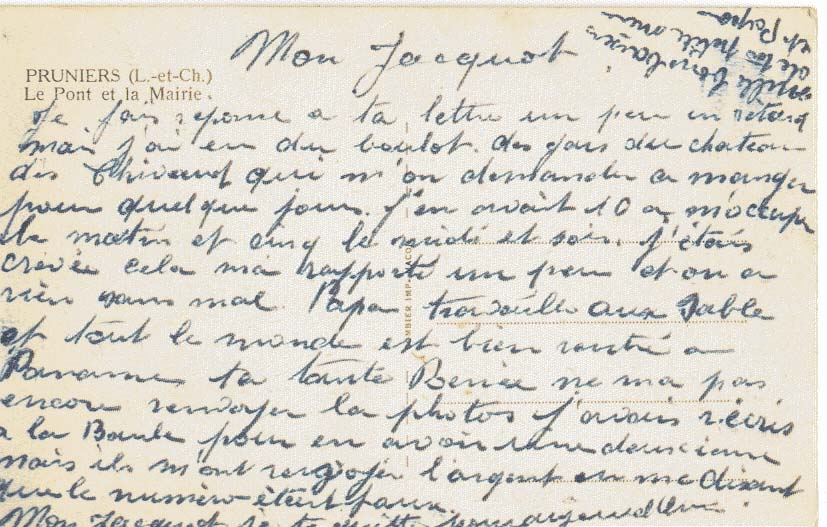 Mon Jacquot
mille bons baisers
de ta petite mere
et Papa
PRUNIERS (L.-et-Ch.)
Le Pont et la Mairie
Je fais reponse a ta lettre un peu en retard
mai j'ai eu du boulot. des gars du chateau
des qui m'on demander a manger
pour quelque jours. J'en avait 10 a m'occuper
le matin et cinq le midi et soir, j'étais
crevée cela ma rapporté un peu et on a
rien sans mal. Papa travaille aux Sable
et tout le monde est bien rentré a
Paname ta tante ne ma pas
encore renvoyer la photos j'avais récris
a la Baule pour en avoir une deuxieme
mais ils m'ont renvoyer l'argent en me disant
que le numéro était faux.
Mon Jacquot je te quitte pour aujourd'hui